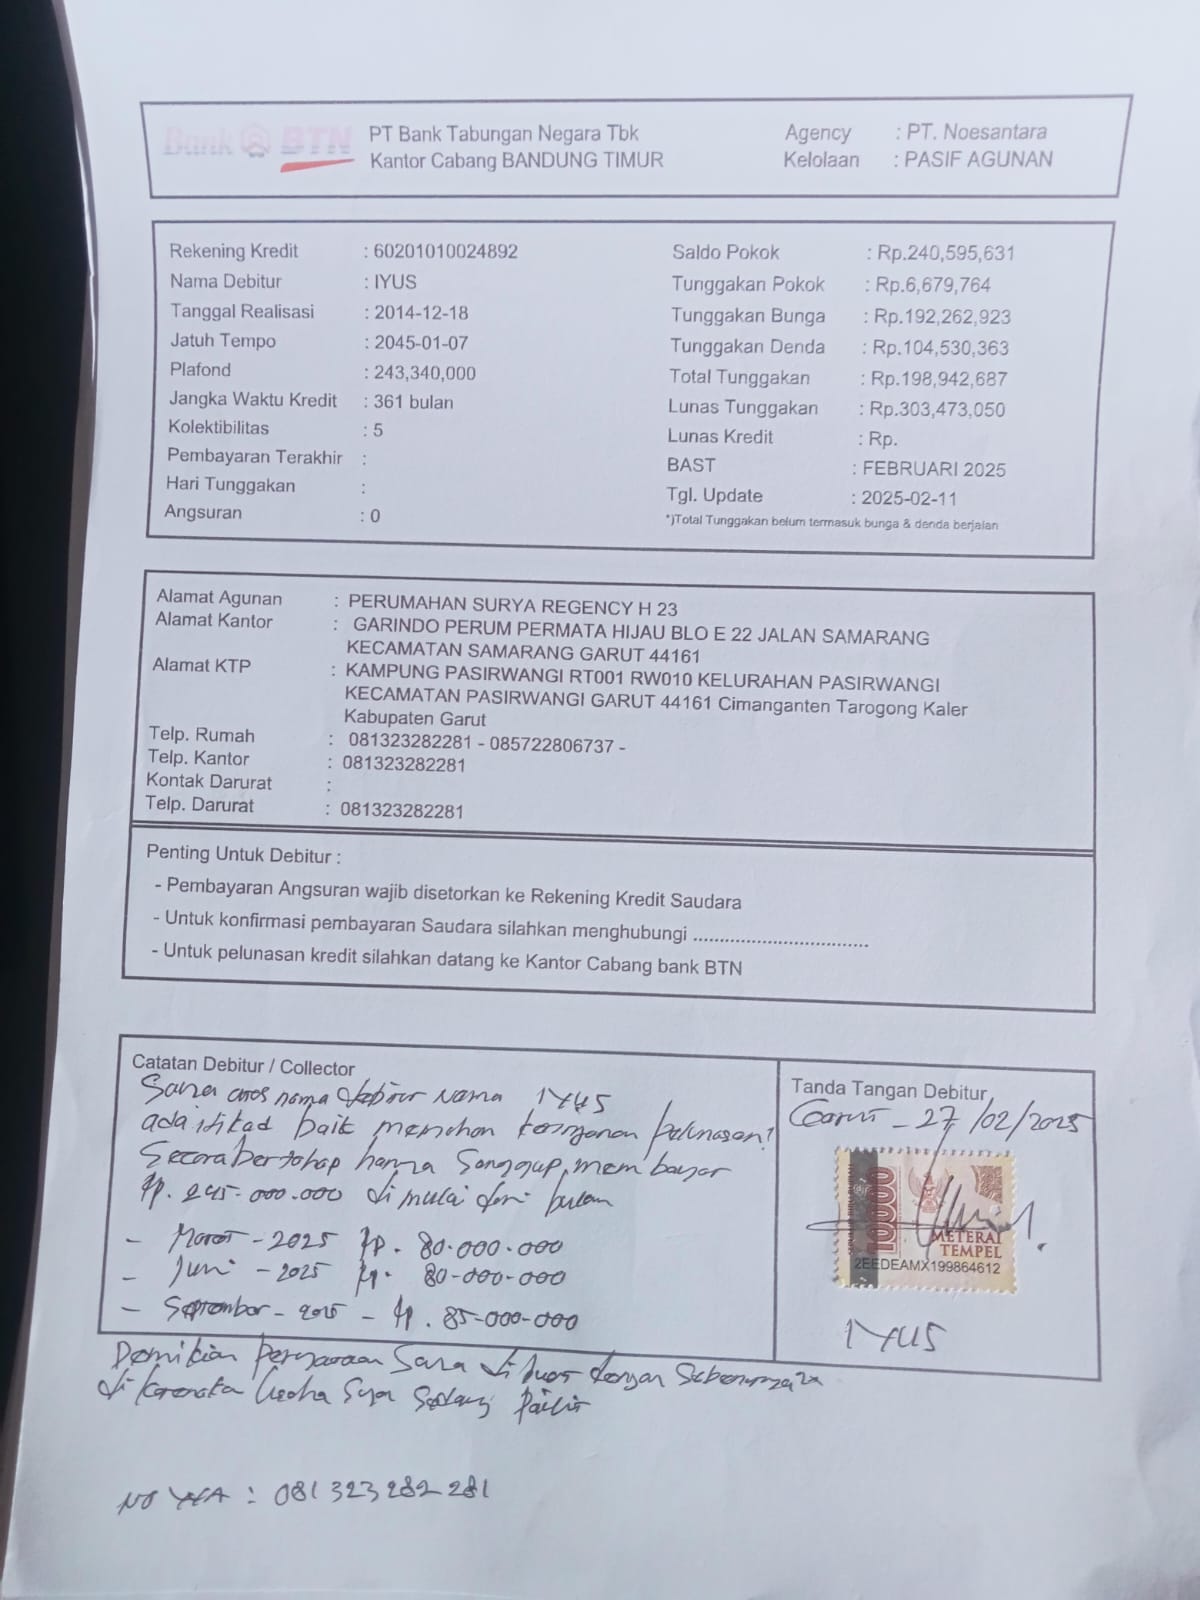 Bank BTN PT Bank Tabungan Negara Tbk
Kantor Cabang BANDUNG TIMUR
Agency : PT. Noesantara
Kelolaan : PASIF AGUNAN
Rekening Kredit : 60201010024892
Nama Debitur : IYUS
Tanggal Realisasi : 2014-12-18
Jatuh Tempo : 2045-01-07
Plafond : 243,340,000
Jangka Waktu Kredit : 361 bulan
Kolektibilitas : 5
Pembayaran Terakhir :
Hari Tunggakan :
Angsuran : 0
Saldo Pokok : Rp.240,595,631
Tunggakan Pokok : Rp.6,679,764
Tunggakan Bunga : Rp.192,262,923
Tunggakan Denda : Rp.104,530,363
Total Tunggakan : Rp.198,942,687
Lunas Tunggakan : Rp.303,473,050
Lunas Kredit : Rp.
BAST : FEBRUARI 2025
Tgl. Update : 2025-02-11
*)Total Tunggakan belum termasuk bunga & denda berjalan
Alamat Agunan : PERUMAHAN SURYA REGENCY H 23
Alamat Kantor : GARINDO PERUM PERMATA HIJAU BLO E 22 JALAN SAMARANG
KECAMATAN SAMARANG GARUT 44161
Alamat KTP : KAMPUNG PASIRWANGI RT001 RW010 KELURAHAN PASIRWANGI
KECAMATAN PASIRWANGI GARUT 44161 Cimanganten Tarogong Kaler
Kabupaten Garut
Telp. Rumah : 081323282281 - 085722806737 -
Telp. Kantor : 081323282281
Kontak Darurat :
Telp. Darurat : 081323282281
Penting Untuk Debitur :
- Pembayaran Angsuran wajib disetorkan ke Rekening Kredit Saudara
- Untuk konfirmasi pembayaran Saudara silahkan menghubungi .................................
- Untuk pelunasan kredit silahkan datang ke Kantor Cabang bank BTN
Catatan Debitur / Collector
Saya atas nama debitur Nama IYUS
ada itikad baik memohon keringanan pelunasan
Secara bertahap hanya Sanggup membayar
Rp. 245.000.000 di mulai dari bulan
- Maret - 2025 Rp. 80.000.000
- Juni - 2025 Rp. 80-000-000
- September - 2025 - Rp. 85-000-000
Demikian pernyataan Saya di buat dengan Sebenarnya
di karenakan Usaha Saya Sedang Pailit
NO WA : 081323282281
Tanda Tangan Debitur
Garut - 27/02/2025
10000
METERAI
TEMPEL
2EEDEAMX199864612
IYUS